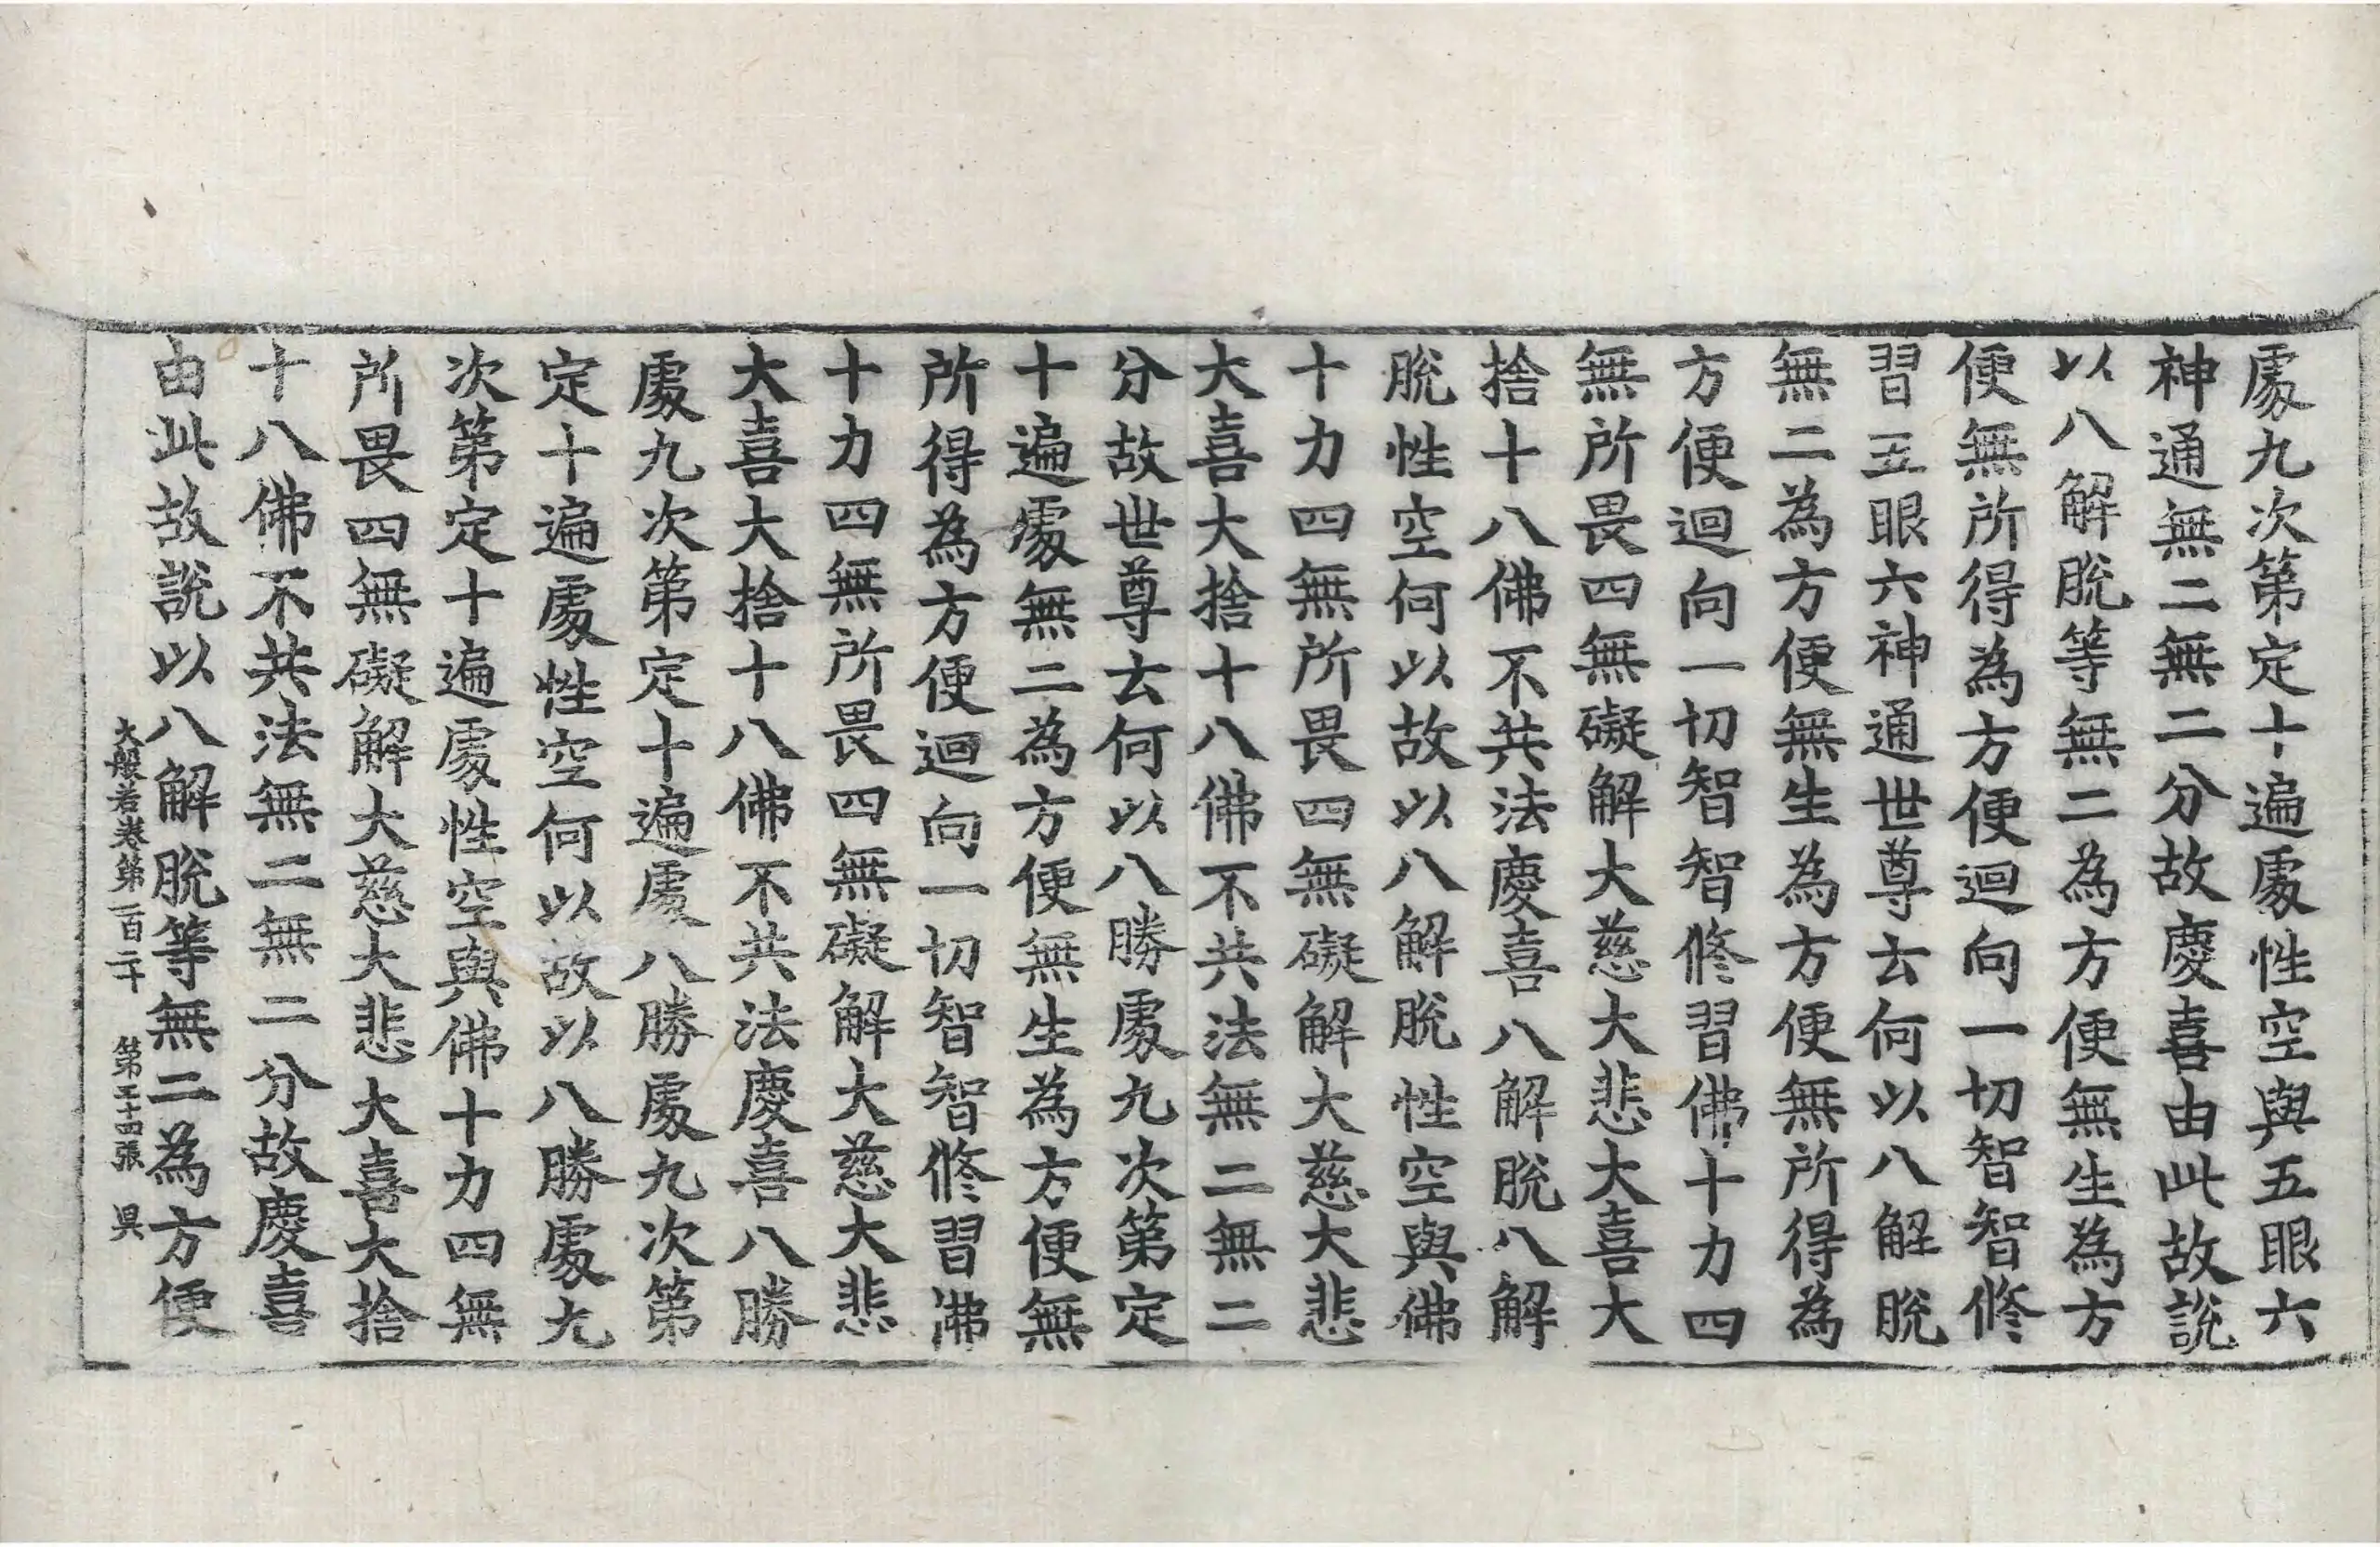 處九次第定十遍處性空與五眼六
神通無二無二分故慶喜由此故說
以八解脫等無二為方便無生為方
便無所得為方便迴向一切智智修
習五眼六神通世尊云何以八解脫
無二為方便無生為方便無所得為
方便迴向一切智智修習佛十力四
無所畏四無礙解大慈大悲大喜大
捨十八佛不共法慶喜八解脫八解
脫性空何以故以八解脫性空與佛
十力四無所畏四無礙解大慈大悲
大喜大捨十八佛不共法無二無二
分故世尊云何以八勝處九次第定
十遍處無二為方便無生為方便無
所得為方便迴向一切智智修習佛
十力四無所畏四無礙解大慈大悲
大喜大捨十八佛不共法慶喜八勝
處九次第定十遍處八勝處九次第
定十遍處性空何以故以八勝處九
次第定十遍處性空與佛十力四無
所畏四無礙解大慈大悲大喜大捨
十八佛不共法無二無二分故慶喜
由此故說以八解脫等無二為方便
大般若卷第一百二十 第二十四張 昃